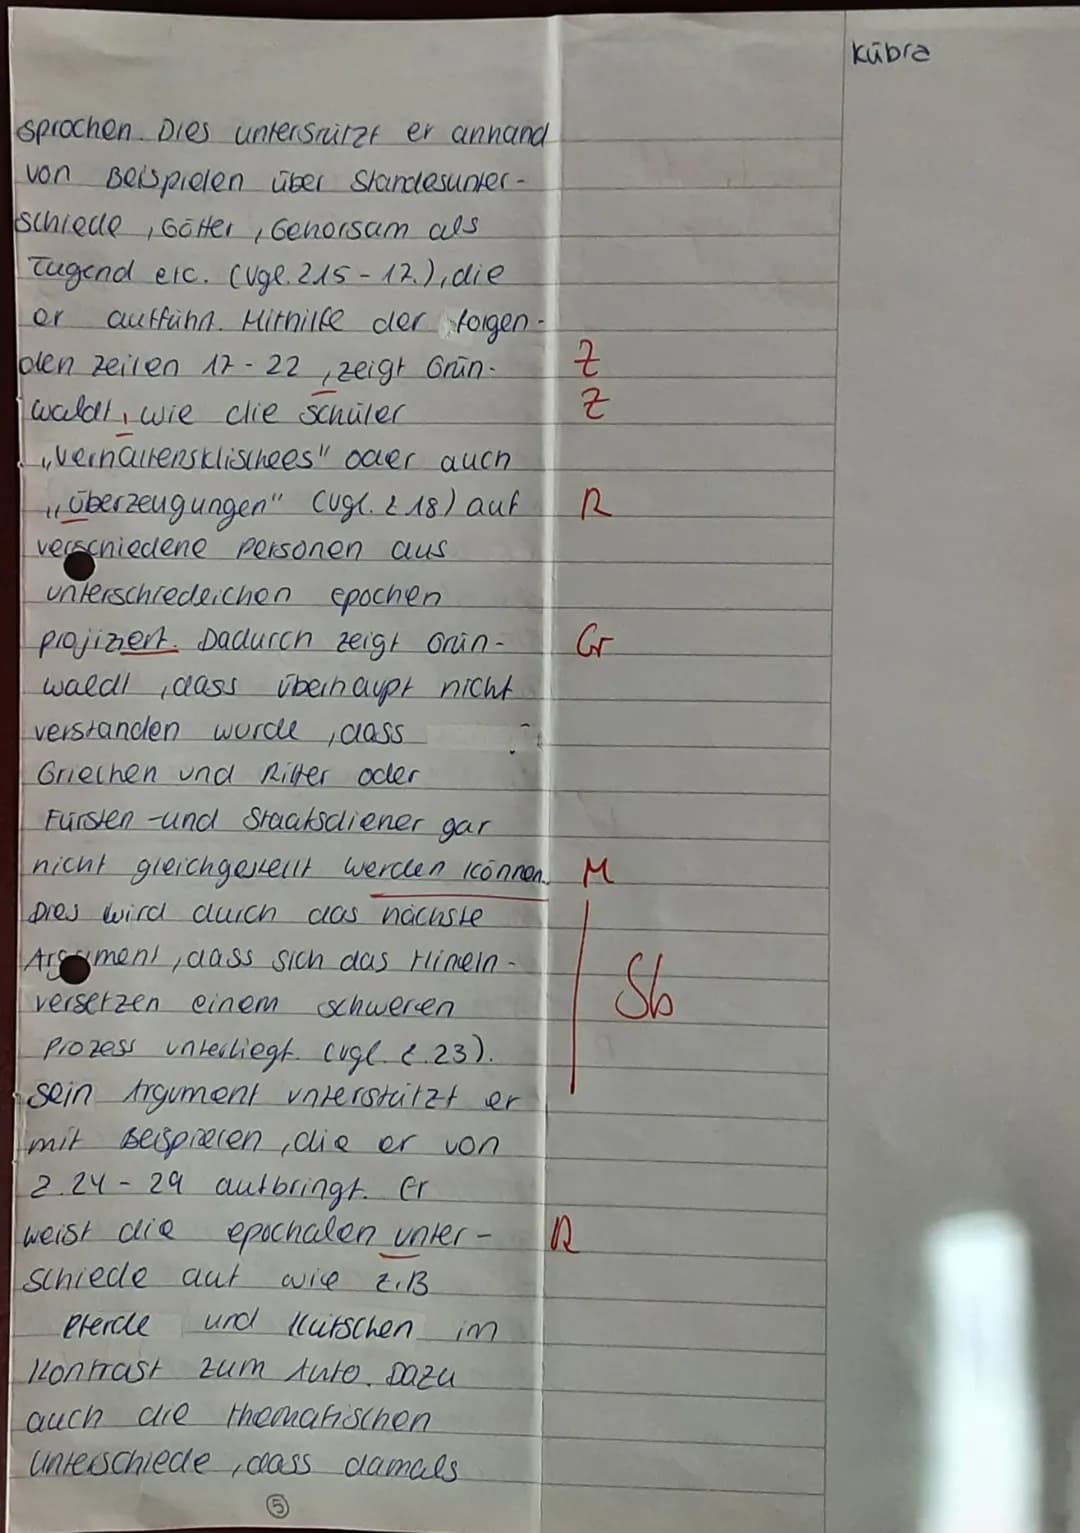 Kübra
sprochen. Dies unterstützt er anhand
von Beispielen über Standesunter-
schiede, Götter, Gehorsam als
Tugend etc. (vgl. Z.15-17.), die
er aufführt. Mithilfe der folgen-
den Zeilen 17-22, zeigt Grün- Z
waldt, wie die Schüler Z
„Verhaltensklischees" oder auch
„überzeugungen" (vgl. Z 18) auf R
verschiedene Personen aus
unterschiedeichen epochen
projiziert. Dadurch zeigt Grün- Gr
waldt, dass überhaupt nicht
verstanden wurde, dass
Griechen und Ritter oder
Fürsten-und Staatsdiener gar
nicht gleichgestellt werden können. M
Dies wird durch das nächste
Argument, dass sich das Hinein-
versetzen einem schweren Sb
Prozess unterliegt. (vgl. Z.23).
Sein Argument unterstützt er
mit Beispielen, die er von
Z.24-29 aufbringt. Er
weist die epochalen unter- R
schiede auf wie z.B
Pferde und Kutschen im
Kontrast zum Auto. Dazu
auch die thematischen
Unterschiede, dass damals
5